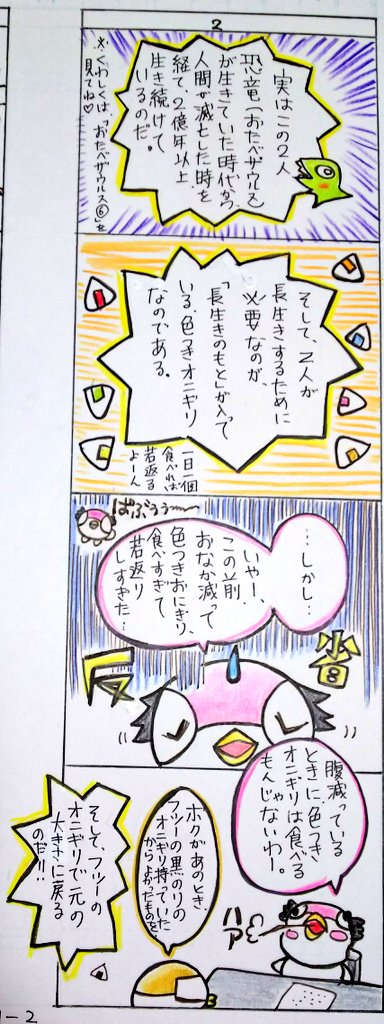 2
実はこの2人
恐竜(おたべザウルス)
が生きていた時代から
人間が滅亡した時を
経て、2億年以上
生き続けて
いるのだ。
※くわしくは「おたべザウルス⑥」を
見てね♡
そして、2人が
長生きするために
必要なのが、
「長生きのもと」が入って
いる、色つきオニギリ
なのである。
一日一個
食べれば
若返る
よーん
ばぶぅぅ〜
……しかし…
いやー、
この前、
おなか減って
色つきおにぎり、
食べすぎて
若返り
しすぎた…
反省
腹減っている
ときに色つき
オニギリは食べる
もんじゃないわー。
ハァ
ボクがあのとき、
フツーの黒のりの
オニギリ持っていた
からよかったものを
そして、フツーの
オニギリで元の
大きさに戻る
のだ!!
1-2